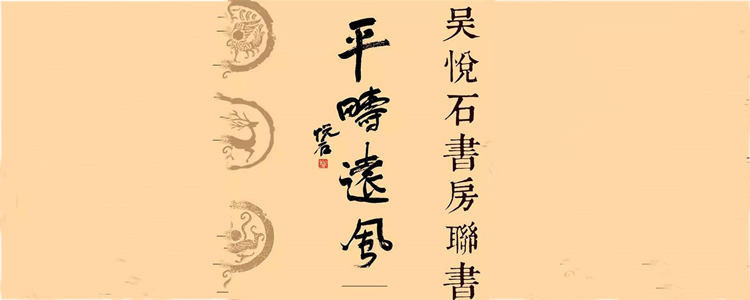 吴悅石書房聯書
平疇遠風
悅石